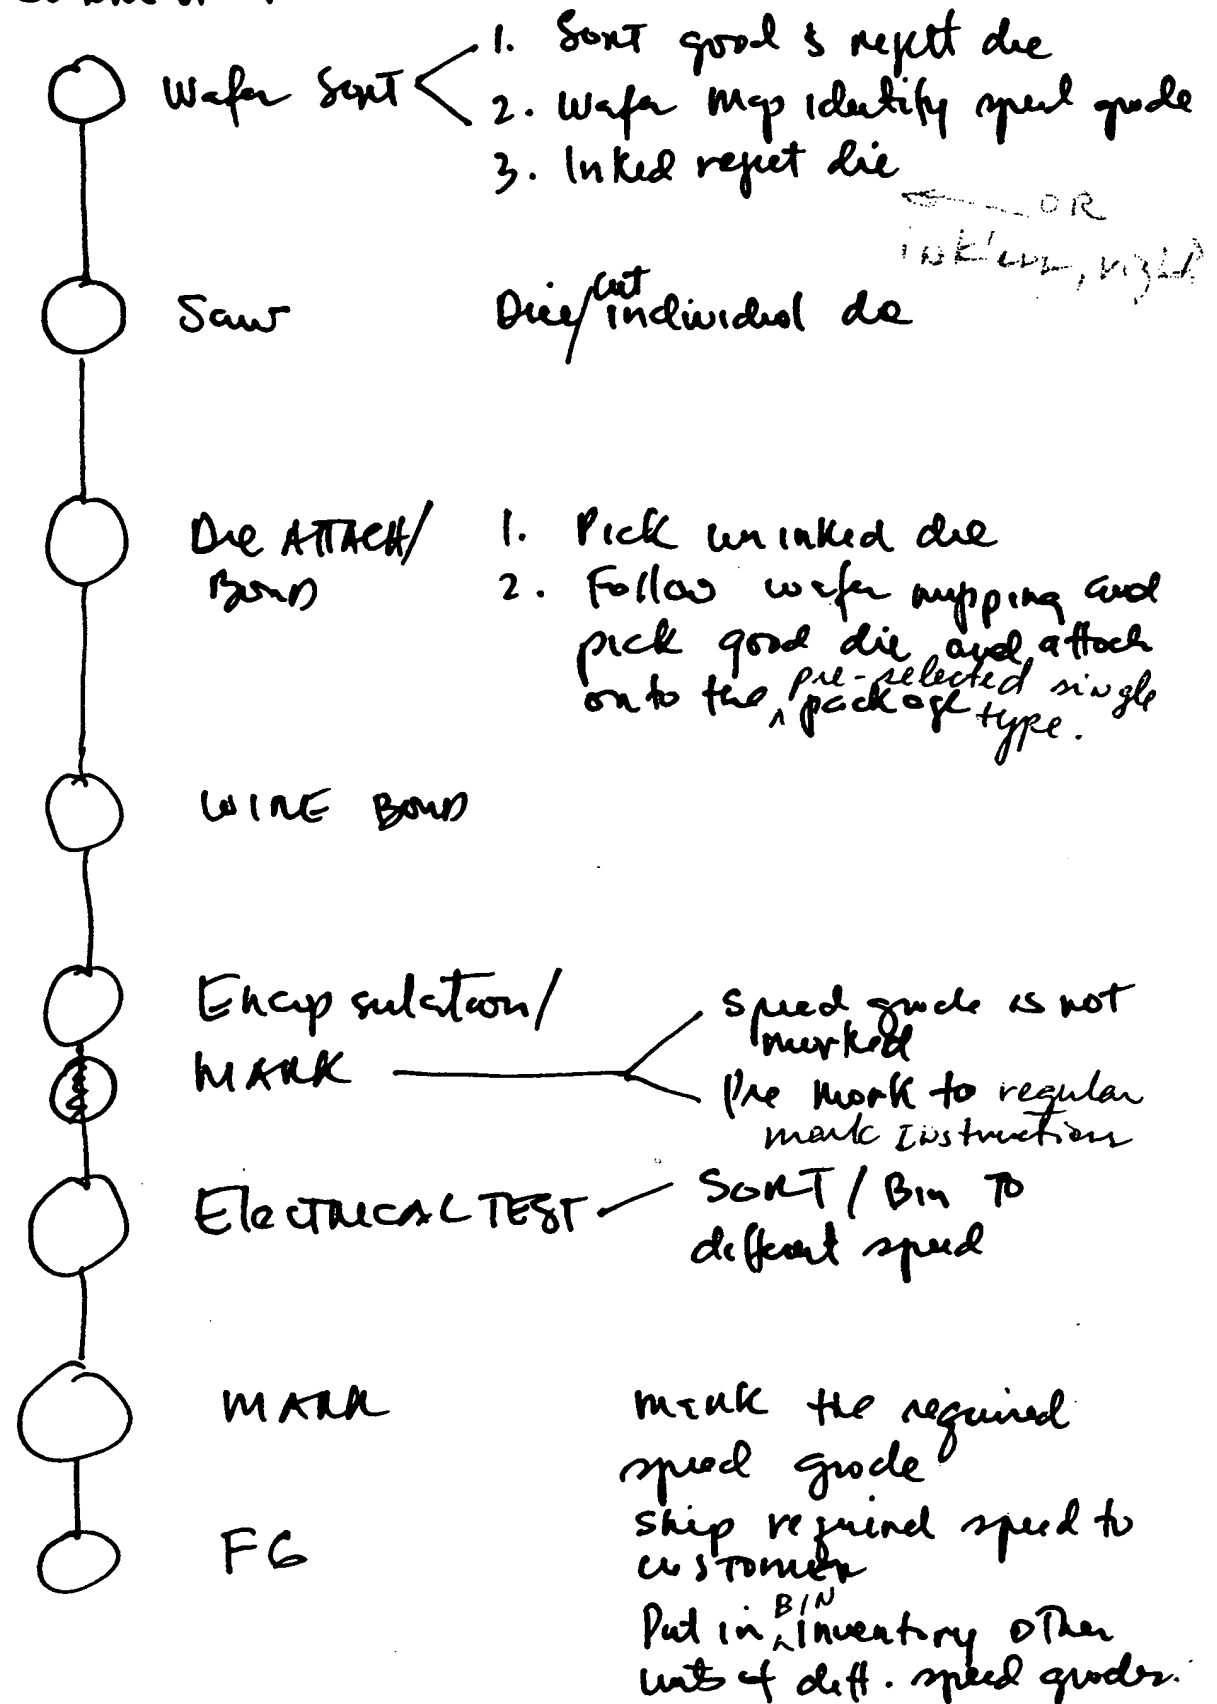 Wafer Sort
1. Sort good & reject die
2. Wafer map identify speed grade
3. Inked reject die
OR
inkless, right?
Saw
Dice/cut individual die
Die ATTACH/
BOND
1. Pick uninked die
2. Follow wafer mapping and
pick good die and attach
onto the pre-selected single
package type.
WIRE BOND
Encapsulation/
MARK
Speed grade is not
marked
Pre mark to regular
mark Instructions
ElecTRICAL TEST
SORT / Bin TO
different speed
MARK
Mark the required
speed grade
FG
Ship required speed to
cusTomer
Put in BIN inventory oTher
units of diff. speed grades.